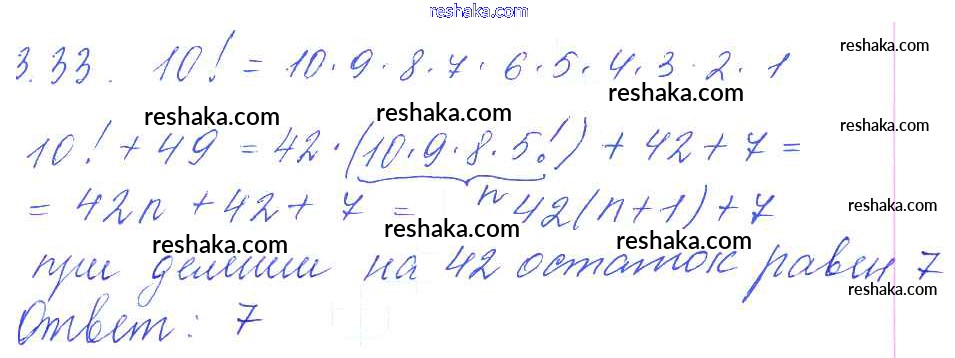 reshaka.com
reshaka.com
3.33. 10! = 10·9·8·7·6·5·4·3·2·1
reshaka.com
reshaka.com reshaka.com
reshaka.com
10! + 49 = 42·(10·9·8·5!) + 42 + 7 =
n
= 42n + 42 + 7 = 42(n+1) + 7
reshaka.com
reshaka.com reshaka.com reshaka.com
при делении на 42 остаток равен 7
reshaka.com
Ответ: 7